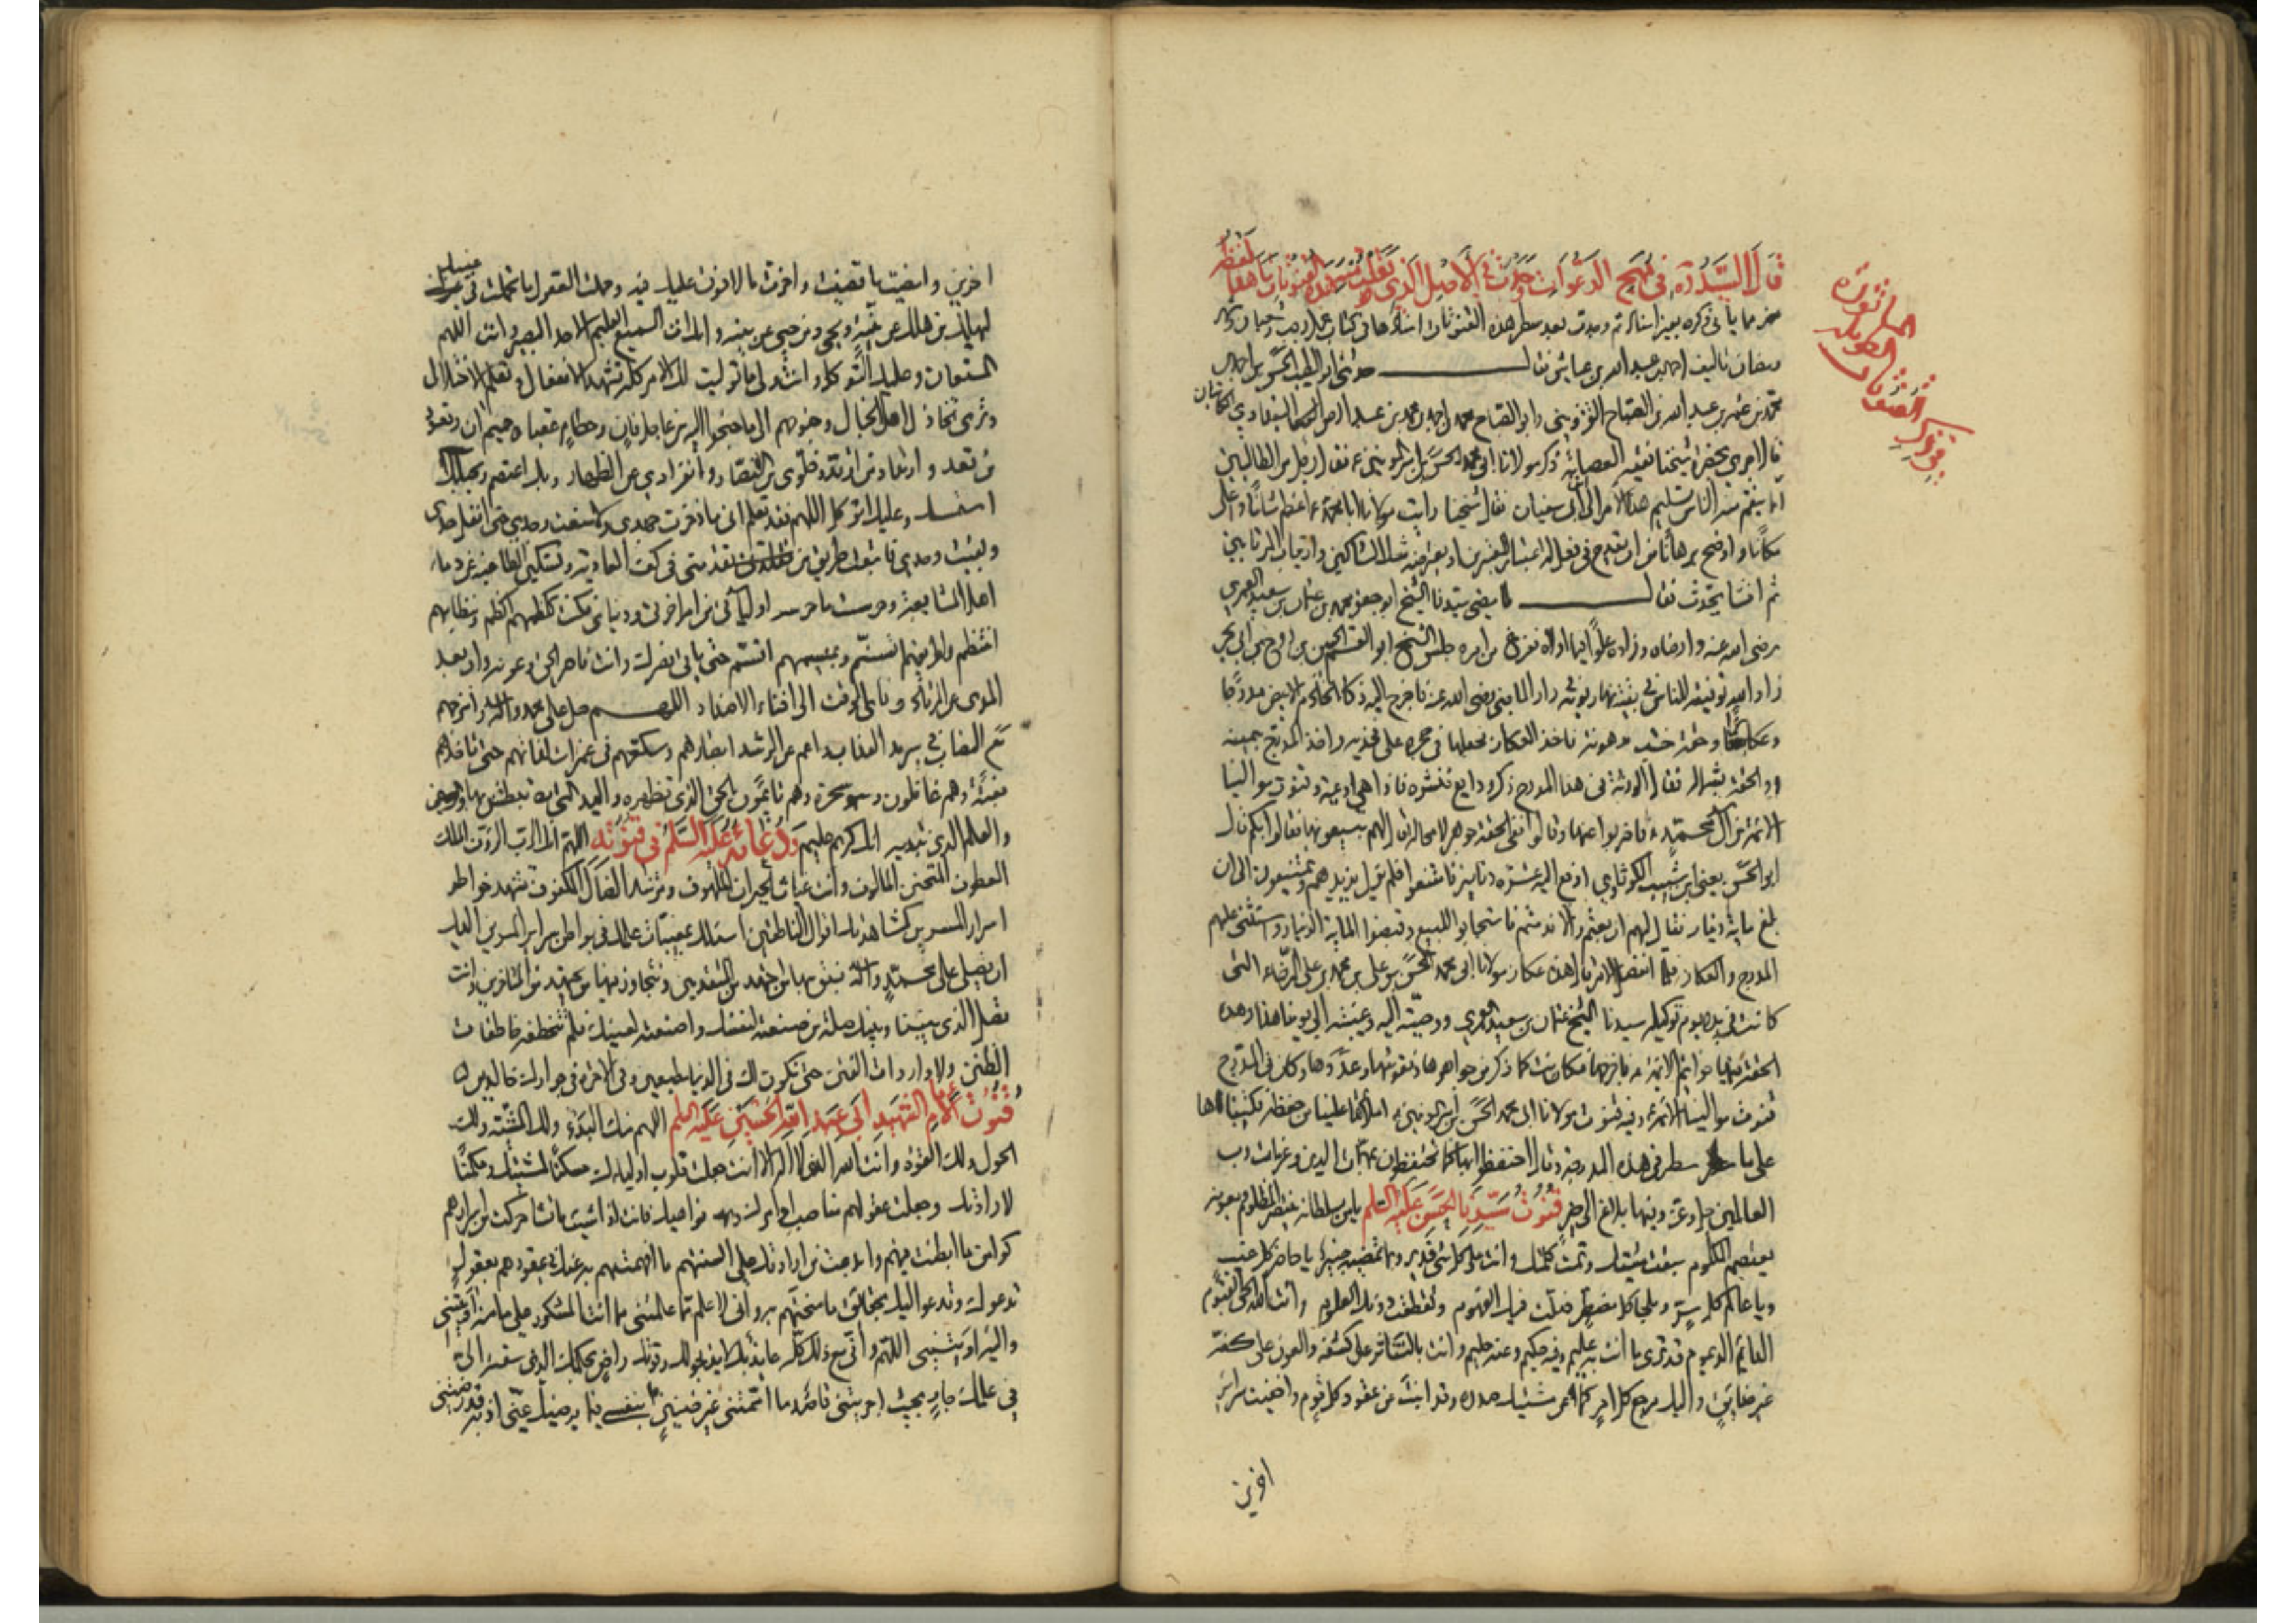 قال السيد ره في مهج الدعوات وجدت في الاصل الذي نقلت منه هذه القنوتات ما هذا لفظه
مما يأتي ذكره بغير اسناد ثم وجدت بعد سطر هذه القنوتات اسنادها في كتاب عمل رجب وشعبان وشهر
رمضان تاليف احمد بن عبد الله بن عياش فقال حدثني ابو الطيب الحسن بن احمد بن
محمد بن عمر بن عبد الله بن الصباح القزويني وابو الصباح محمد بن احمد بن محمد بن عبد الرحمن البغدادي الكاتبان
قالا جرى بحضرة شيخنا فقيه العصابة ذكر مولانا ابي محمد الحسن بن امير المؤمنين ع فقال رجل من الطالبيين
انما ينقم منه الناس تسليم هذا الامر الى ابن ابي سفيان فقال شيخنا رايت مولانا ابا محمد ع اعظم شانا واعلى
مكانا واوضح برهانا من ان يقدح في فعل له اعتبار المعتبرين او يعترضه شك الشاكين وارتياب المرتابين
ثم انشا يحدث فقال لما مضى سيدنا الشيخ ابو جعفر محمد بن عثمان بن سعيد العمري
رضي الله عنه وارضاه وزاده علوا فيما اولاه وفرغ من امره جلس الشيخ ابو القسم الحسين بن روح بن ابي بحر
زاد الله توفيقه للناس في بقية نهار يومه في دار الماضي رضي الله عنه فاخرج اليه ذكا الخادم الابيض مدرجا
وعكازا وحقة خشب مدهونة فاخذ العكاز فجعلها في حجره على فخذيه واخذ المدرج بيمينه
والحقة بشماله فقال الورثة في هذا المدرج ذكر ودايع فنشره فاذا هي ادعية وقنوت موالينا
الائمة من آل محمد ع فاضربوا عنها وقالوا ففي الحقة جوهر لا محالة قال لهم تبيعونها فقالوا بكم قال
يا ابا الحسن يعني ابن شبيب الكوثاوي ادفع اليه عشرة دنانير فامتنعوا فلم يزل يزيدهم ويمتنعون الى ان
بلغ ماية دينار فقال لهم ان بعتم والا ندمتم فاستجابوا للبيع وقبضوا الماية الدينار واستثنى عليهم
المدرج والعكاز فلما انفصل الامر قال هذه عكاز مولانا ابي محمد الحسن بن علي بن محمد بن علي الرضا ع التي
كانت في يده يوم توكيله سيدنا الشيخ عثمان بن سعيد العمري ووصيته اليه وغيبته الى يومنا هذا وهذه
الحقة فيها خواتيم الائمة ع فاخرجها فكانت كما ذكر من جواهرها ونقوشها وعددها وكان في المدرج
قنوت موالينا الائمة ع وفيه قنوت مولانا ابي محمد الحسن بن امير المؤمنين ع املاها علينا من حفظه فكتبناها
على ما سطر في هذه المدرجة وقال احتفظوا بها كما تحتفظون بمهمات الدين وعزمات رب
العالمين جل وعز وفيها بلاغ الى حين قنوت سيدنا الحسن عليه السلم يا من بسلطانه ينتصر المظلوم وبعونه
يعتصم المكلوم سبقت مشيتك وتمت كلمتك وانت على كل شئ قدير وبما تمضيه خبير يا حاضر كل غيب
ويا عالم كل سر وملجأ كل مضطر ضلت فيك الفهوم وتقطعت دونك العلوم وانت الله الحي القيوم
الدائم الديموم قد ترى ما انت به عليم وفيه حكيم وعنه حليم وانت بالتناصر على كشفه والعون على كفه
غير ضايق واليك مرجع كل امر كما عن مشيتك مصدره وقد ابنت عن عقود كل قوم واخفيت سراير
اخرين
الماثورة
الطويلة
القنوتات
في ذكر
اخرين وامضيت ما قضيت واخرت ما لا فوت عليك فيه وحملت العقول ما تحملت في غيبك
ليهلك من هلك عن بينة ويحيى من حي عن بينة وانك انت السميع العليم الاحد البصير وانت اللهم
المستعان وعليك التوكل وانت ولي ما توليت لك الامر كله تشهد الانفعال وتعلم الاختلال
وترى تخاذل اهل الخبال وجنوحهم الى ما جنحوا اليه من عاجل فان وحطام عقباه حميم آن وقعود
من قعد وارتداد من ارتد وخلوي من النصار وانفرادي عن الظهار وبك اعتصم وبحبلك
استمسك وعليك اتوكل اللهم فقد تعلم اني ما ذخرت جهدي ولا منعت وجدي حتى انفل حدي
وبقيت وحدي فاتبعت طريق من تقدمني في كف العادية وتسكين الطاغية عن دماء
اهل المشايعة وحرست ما حرسه اوليائي من امر اخرتي ودنياي فكنت ككظمهم اكظم وبنظامهم
انتظم ولطريقتهم اتسنم وبميسمهم اتسم حتى ياتي نصرك وانت ناصر الحق وعونه وان بعد
المدى عن المرتاد وناى الوقت الى افناء الاضداد اللهم صل على محمد واله وامزجهم
مع النصاب في سرمد العذاب واعم عن الرشد ابصارهم وسكعهم في غمرات لذاتهم حتى تاخذهم
بغتة وهم غافلون وسحرة وهم نائمون بالحق الذي تظهره واليد التي تبطش بها
والعلم الذي تبديه انك كريم عليم ودعا ع عليه السلم في قنوته اللهم انك الرب الرؤف الملك
العطوف المتحنن المالوف وانت غياث الحيران الملهوف ومرشد الضال المكفوف تشهد خواطر
اسرار المسرين كمشاهدتك اقوال الناطقين اسئلك بمغيبات علمك في بواطن سراير المسرين اليك
ان تصلي على محمد واله نسبق بها من اجتهد من المتقدمين ونتجاوز فيها من يجتهد من المتاخرين وانت
تصل الذي بيننا وبينك صلة من صنعته لنفسك واصنعته لعينك فلم تتخطفه خاطفات
الظنن ولا واردات الفتن حتى نكون لك في الدنيا طيعين وفي الاخرة في جوارك خالدين
قنوت الامام الشهيد ابي عبد الله الحسين عليه السلم اللهم منك البدء ولك المشية ولك
الحول ولك القوة وانت الله الذي لا اله الا انت جعلت قلوب اوليائك مسكنا لمشيتك ومكمنا
لارادتك وجعلت عقولهم مناصب اوامرك ونواهيك فانت اذا شئت ما تشاء حركت من اسرارهم
كوامن ما ابطنت فيهم وابدات من ارادتك على السنتهم ما افهمتهم به عنك في عقودهم بعقول
تدعوك وتدعو اليك بحقايق ما منحتهم به واني لاعلم مما علمتني مما انت المشكور على ما منه اريتني
واليه اويتني اللهم واني مع ذلك كله عايذ بك لايذ بحولك وقوتك راض بحكمك الذي سقته الي
في علمك جار بحيث اجريتني قاصد ما اممتني غير ضنين بنفسي فيما يرضيك عني اذ به قد رضيتني